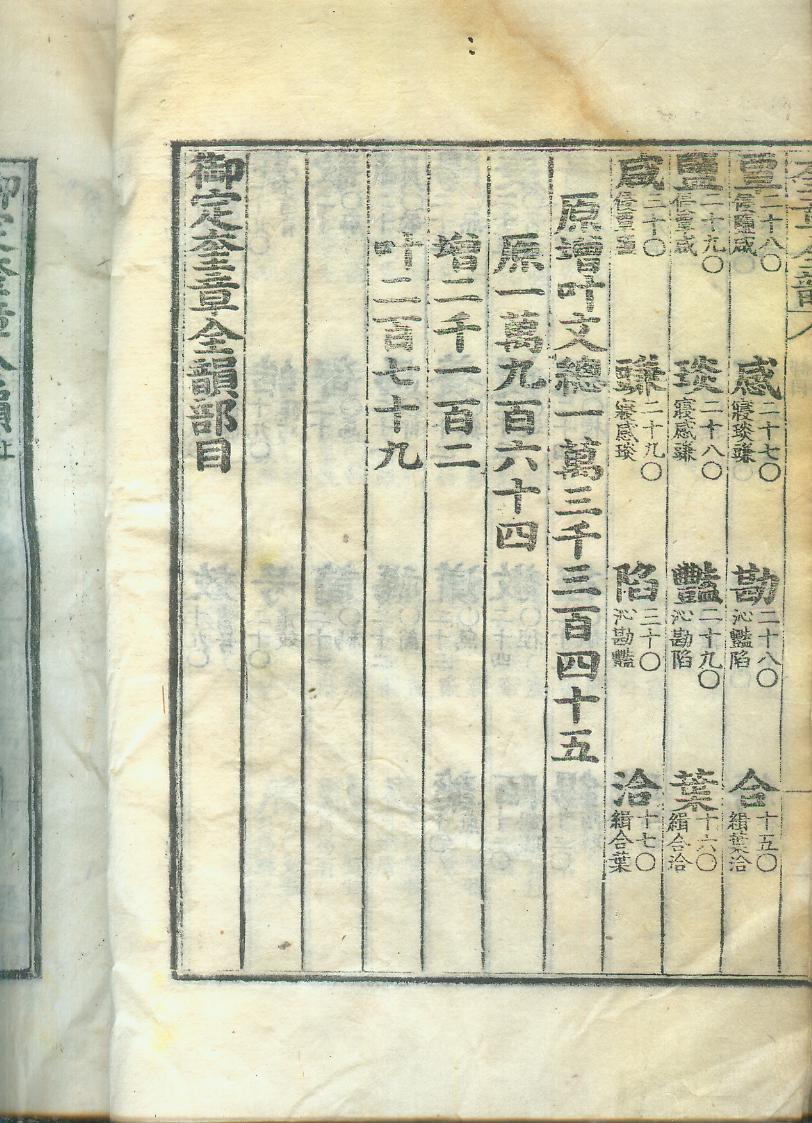 覃二十八〇侵鹽咸 感二十七〇寢琰豏 勘二十八〇沁豔陷 合十五〇緝葉洽
鹽二十九〇侵覃咸 琰二十八〇寢感豏 豔二十九〇沁勘陷 葉十六〇緝合洽
咸三十〇侵覃鹽 豏二十九〇寢感琰 陷三十〇沁勘豔 洽十七〇緝合葉
原增叶文總一萬三千三百四十五
原一萬九百六十四
增二千一百二
叶二百七十九
御定奎章全韻部目
御定奎章全韻上